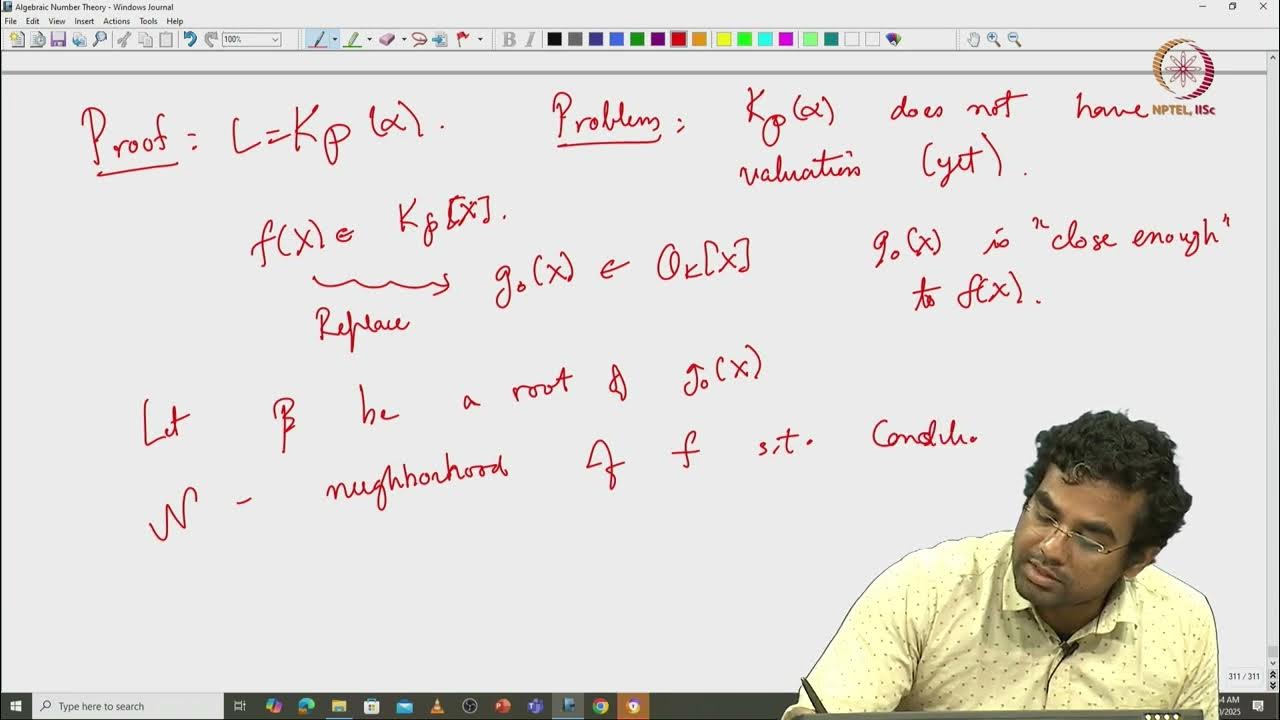 Algebraic Number Theory - Windows Journal
File Edit View Insert Actions Tools Help
100%
B I
NPTEL, IISc
Proof: L=K_p(α). Problem: K_p(α) does not have
valuation (yet).
f(X) ∈ K_p[X].
Replace
g₀(X) ∈ O_K[X]
g₀(X) is "close enough"
to f(X).
Let β be a root of g₀(X)
N - neighborhood of f s.t.
311 / 311
Type here to search